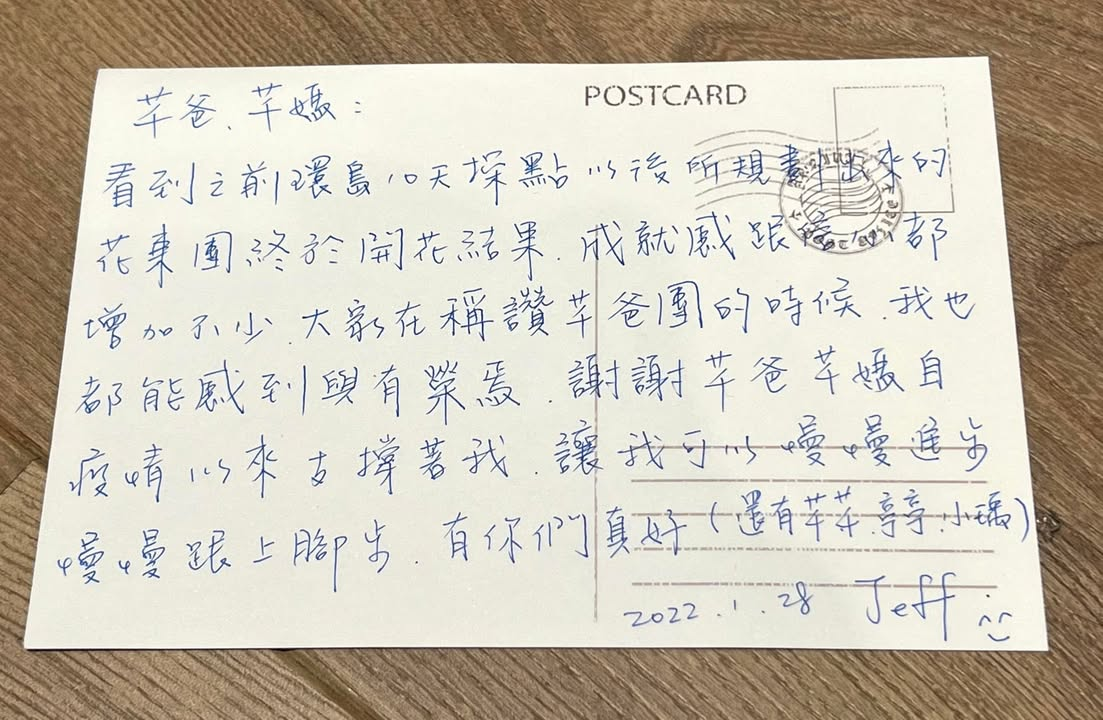 POSTCARD
芊爸、芊媽：
看到之前環島10天探點以後所規畫出來的
花東團終於開花結果.成就感跟 都
增加不少.大家在稱讚芊爸團的時候.我也
都能感到與有榮焉.謝謝芊爸芊媽自
疫情以來支撐著我.讓我可以慢慢進步
慢慢跟上腳步.有你們真好(還有芊芊.亭亭.小瑀)
2022.1.28 Jeff